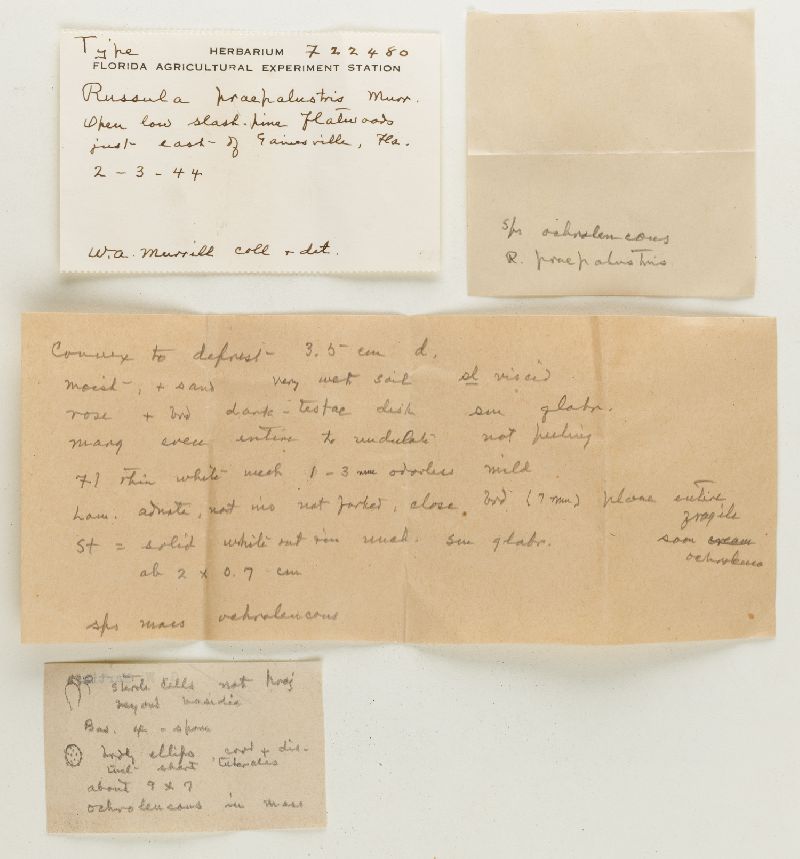 Type HERBARIUM 722480
FLORIDA AGRICULTURAL EXPERIMENT STATION
Russula praepalustris Murr.
Open low slash-pine flatwoods
just east of Gainesville, Fla.
2 - 3 - 44
W.A. Murrill coll + det.
sps ochroleucous
R. praepalustris
Convex to deprest 3.5 cm d.
moist, + sand very wet soil sl viscid
rose + brd dark-testac disk sm glabr.
marg even entire to undulate not peeling
Fl thin white 1-3 mm odorless mild
Lam. adnate, not ins not forked, close brd (7 mm) plane entire
fragile
St = solid white out sm glabr. soon cream
ochroleuc
ab 2 x 0.7 cm
sps mass ochroleucous
sterile cells not proj
beyond basidia
Bas. 4 - spore
brdly ellips cov'd + dis-
tinct short tubercles
about 9 x 7
ochroleucous in mass